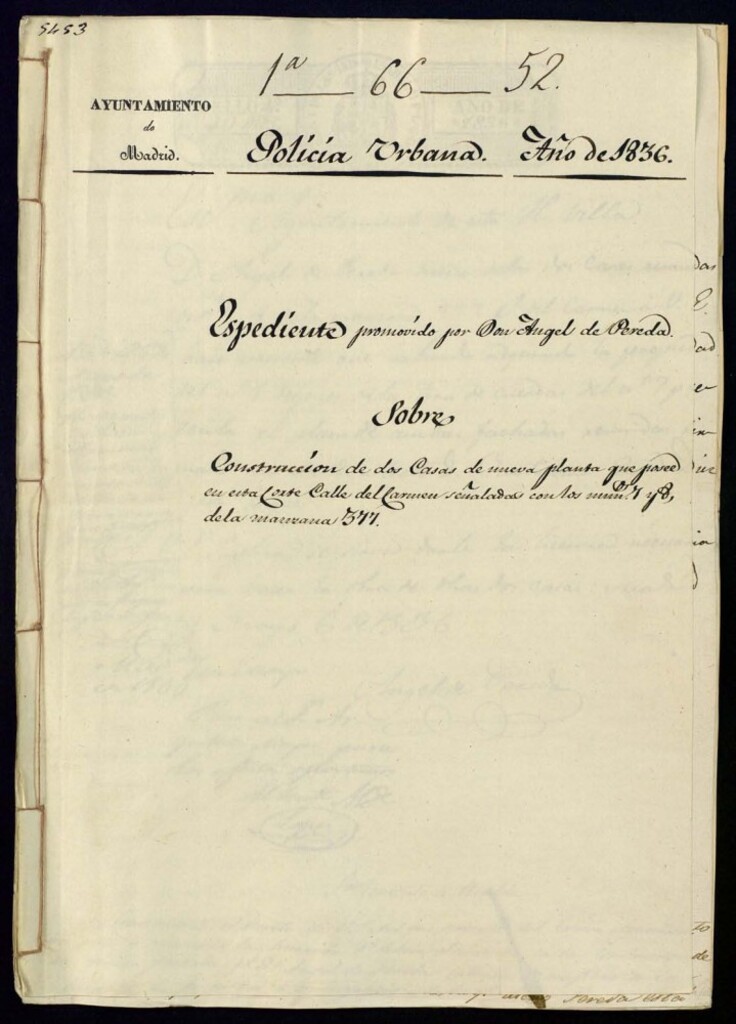 5453
1ª 66 52.
AYUNTAMIENTO
de
Madrid.
Policía Urbana.
Año de 1836.
Espediente promovido por Don Angel de Pereda.
Sobre
Construccion de dos Casas de nueva planta que posee
en esta Corte Calle del Carmen señaladas con los num.ˢ 7 y 8,
de la manzana 377.